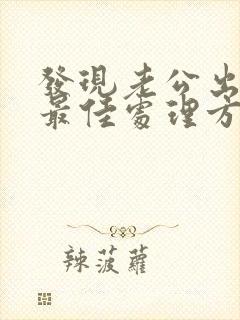 發現老公出
最佳處理方
辣菠蘿